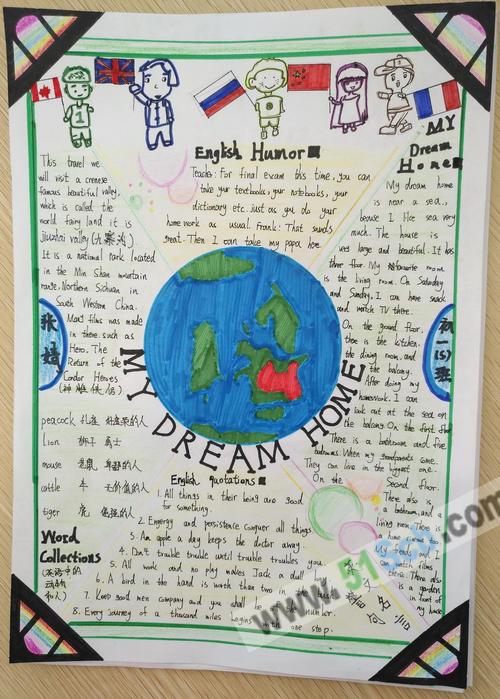 English Humor
Teacher: For final exam this time, you can
take your textbooks, your notebooks, your
dictionary etc. just as you do your
homework as usual. Frank: That sounds
great. Then I can take my papa here.
This travel we
will visit a
famous beautiful valley,
which is called the
world fairy land it is
Jiuzhai valley (九寨沟).
It is a national park located
in the Min Shan mountain
range, Northern Sichuan in
South Western China.
Many films was made
in there. such as
Hero, The
Return of the
Condor Heroes
(神雕侠侣)
MY
Dream
Home
My dream home
is near a sea.,
beause I like sea very
much. The house is
very large and beautiful. It has
three floor. My room
is the living room. On Saturday
and Sunday, I can have snack
and watch TV there.
On the ground floor,
thoe is the kitchen,
the dining room, and
the balcony.
After doing my
homework. I can
look out at the sea on
the balcony. On the first floor
There is a bathroom and five
bedrooms. When my grandparents come.
They can live in the biggest one.
On the Second floor.
There also is
a bathroom, and a
living room. There is
home cinema too
My friends and I
watch films
there. There also
is a garden
in front of
my house
张
初一(5)班
MY DREAM HOME
peacock 孔雀 的人
Lion 狮子 勇士
mouse 老鼠 的人
cattle 牛 无价值的人
tiger 虎 的人
Word
Collections
(英语中的
动物
和人)
English quotations
1. All things in their being are good
for something.
2. Energy and persistence conquer all things.
3. An apple a day keeps the doctor away.
4. Don't trouble trouble until trouble troubles you.
5. All work and no play makes Jack a dull boy
6. A bird in the hand is worth than two in the bush
7. Keep good men company and you shall be of the number.
8. Every journey of a thousand miles begins with one step.
英文名言
www.51
.com